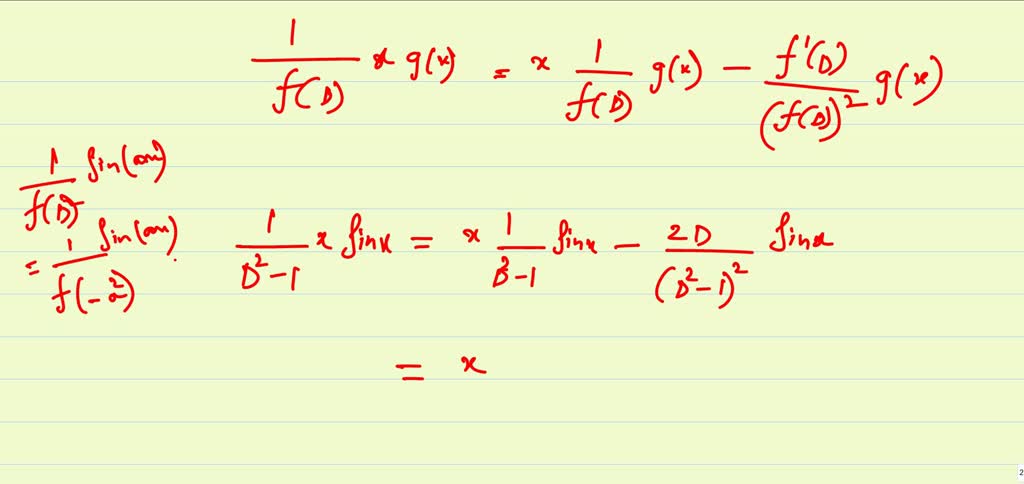 1/f(D) x g(x) = x 1/f(D) g(x) − f'(D)/(f(D))² g(x)
1/f(D²) sin(ax)
= 1/f(−a²) sin(ax).
1/(D²−1) x sinx = x 1/(D²−1) sinx − 2D/(D²−1)² sinx
= x
2